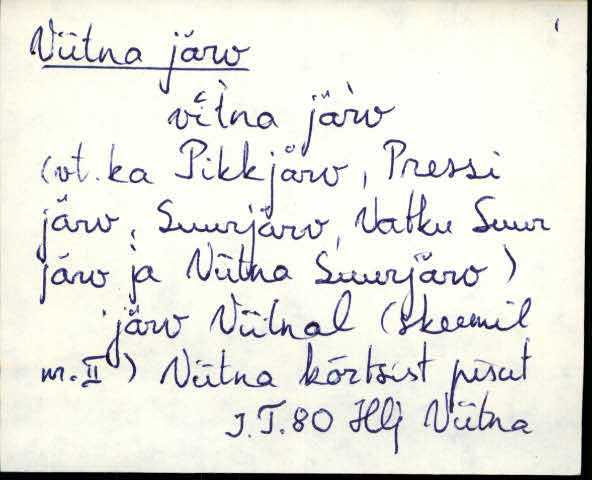 Viitna järv
vi̬i̬tna jär̀v
(vt. ka Pikkjärv, Pressi
järv, Suurjärv, Vatku Suur
järv ja Viitna Suurjärv)
järv Viitnal (skeemil
nr. II) Viitna kõrtsist pisut
J.T.80 Hlj Viitna